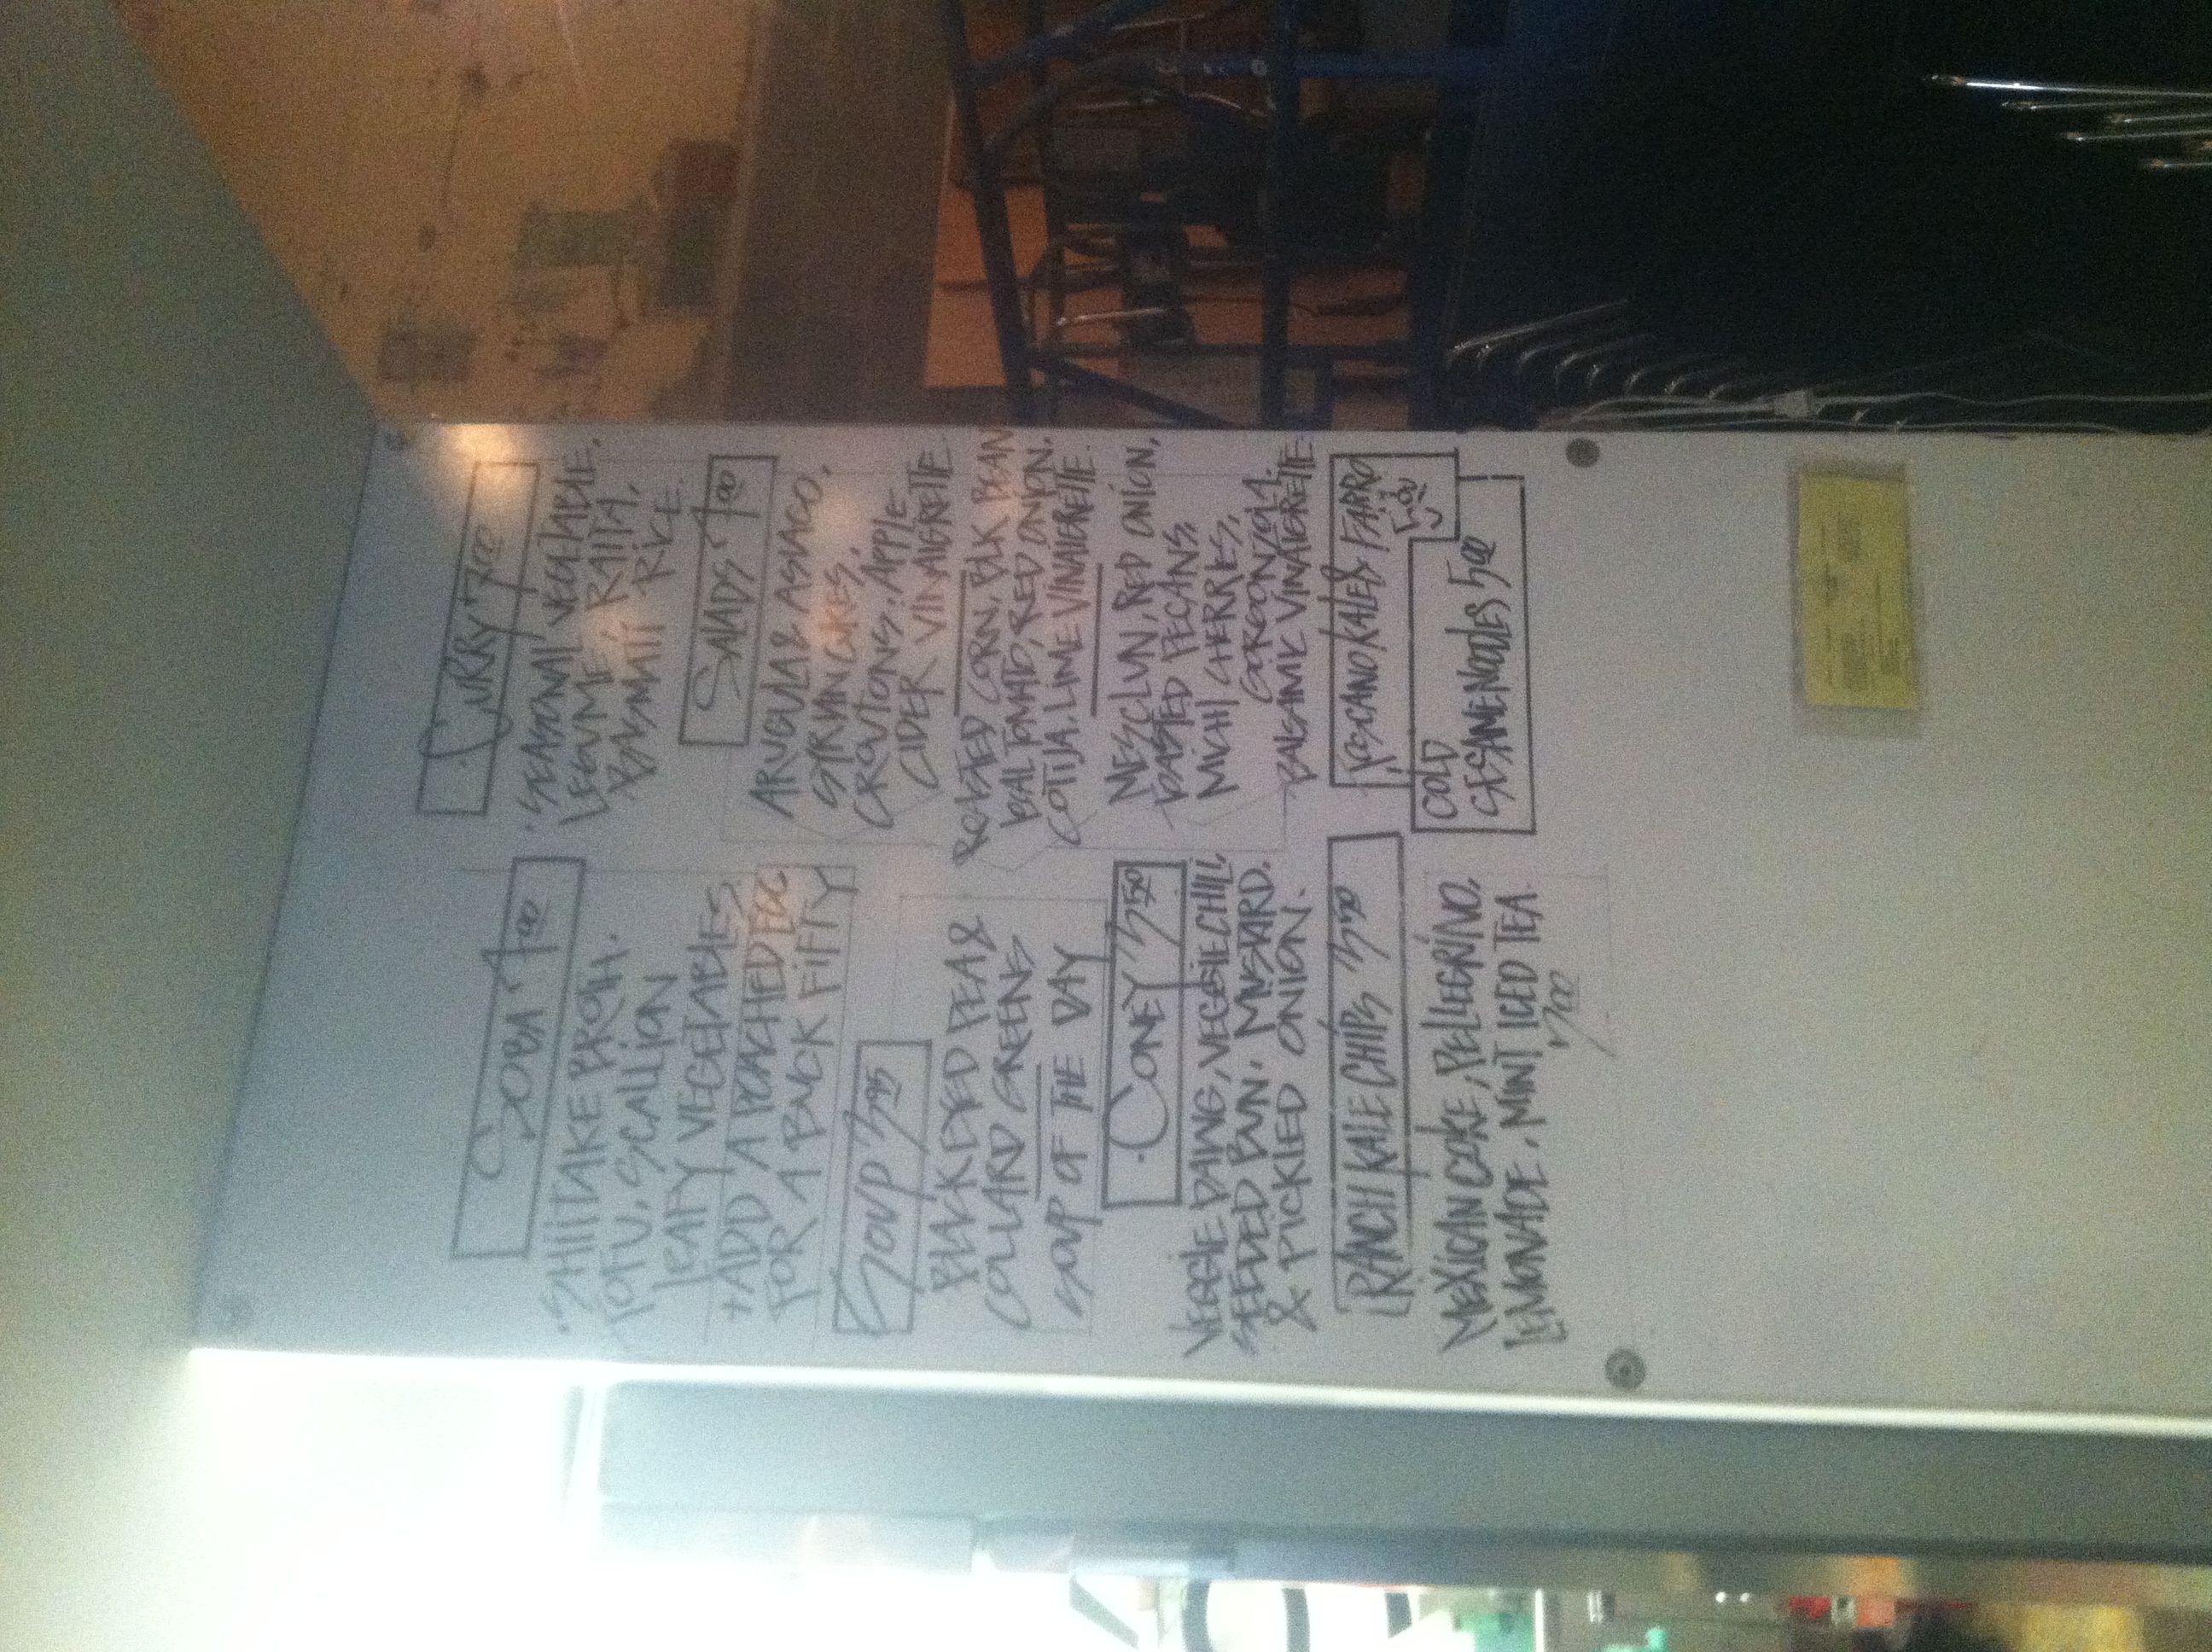 SOBA 7.00
SHIITAKE BROTH.
TOFU, SCALLION
LEAFY VEGETABLES
+ADD A POACHED EGG
FOR A BUCK FIFTY
SOUP 3.95
BLACK EYED PEA &
COLLARD GREENS
SOUP OF THE DAY
CONEY 3.50
VEGGIE DAWG, VEGGIE CHILI,
SEEDED BUN, MUSTARD,
& PICKLED ONION.
RANCH KALE CHIPS 3.50
MEXICAN COKE, PELLEGRINO,
LEMONADE, MINT ICED TEA
CURRY 7.00
SEASONAL VEGETABLE,
LEGUME, RAITA,
BASMATI RICE.
SALADS 7.00
ARUGULA & ASIAGO,
SYRIAN CUKES,
CROUTONS, APPLE
CIDER VINAIGRETTE
ROASTED CORN, BLK BEAN
LOCAL TOMATO, RED ONION,
COTIJA, LIME VINAIGRETTE.
MESCLUN, RED ONION,
TOASTED PECANS,
MICHI CHERRIES,
GORGONZOLA,
BALSAMIC VINAIGRETTE
TOSCANO KALE & FARRO
COLD
SESAME NOODLES 5.00